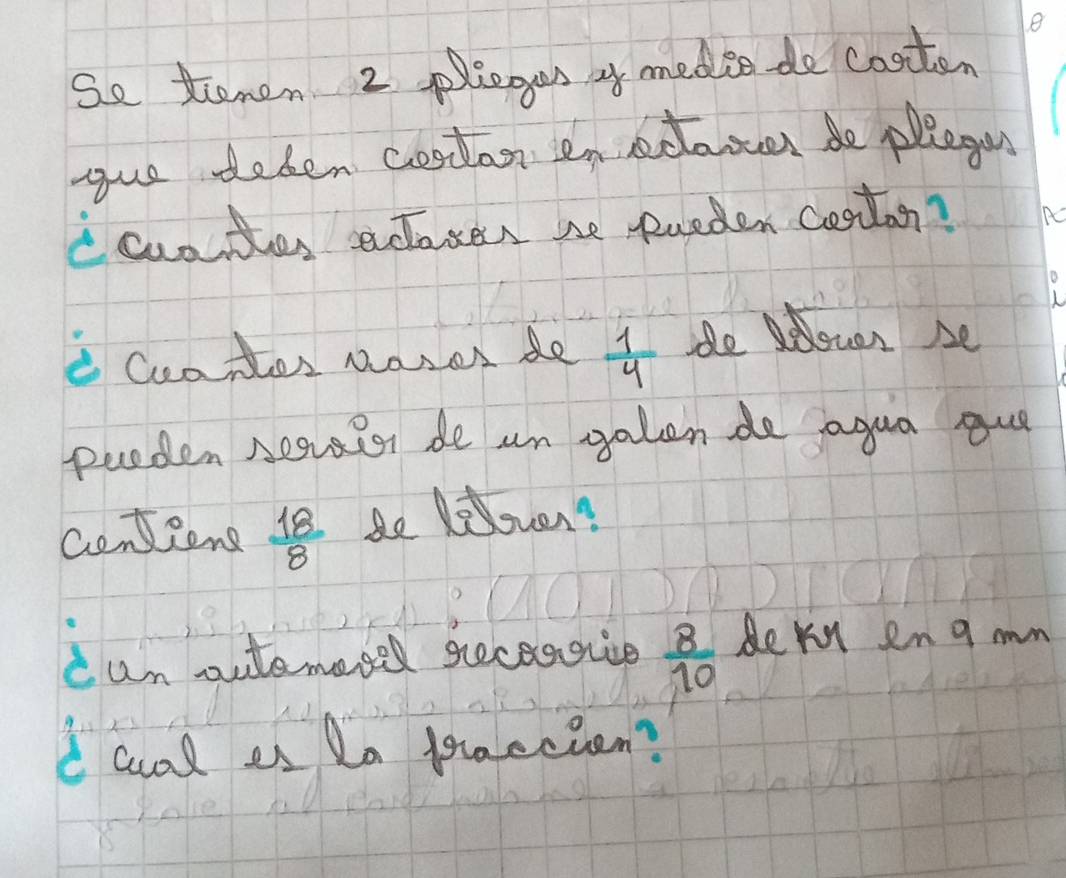 Se tienen 2 pliegos y medio de carton
que deben cortar en octavos de pliegos
¿cuantos octavos se pueden cortar?
¿Cuantos vasos de 1/4 de litros se
pueden servir de un galon de agua que
contiene 18/8 de litros?
¿un automovil recorrio 8/10 de km en 9 mn
¿cual es la fraccion?